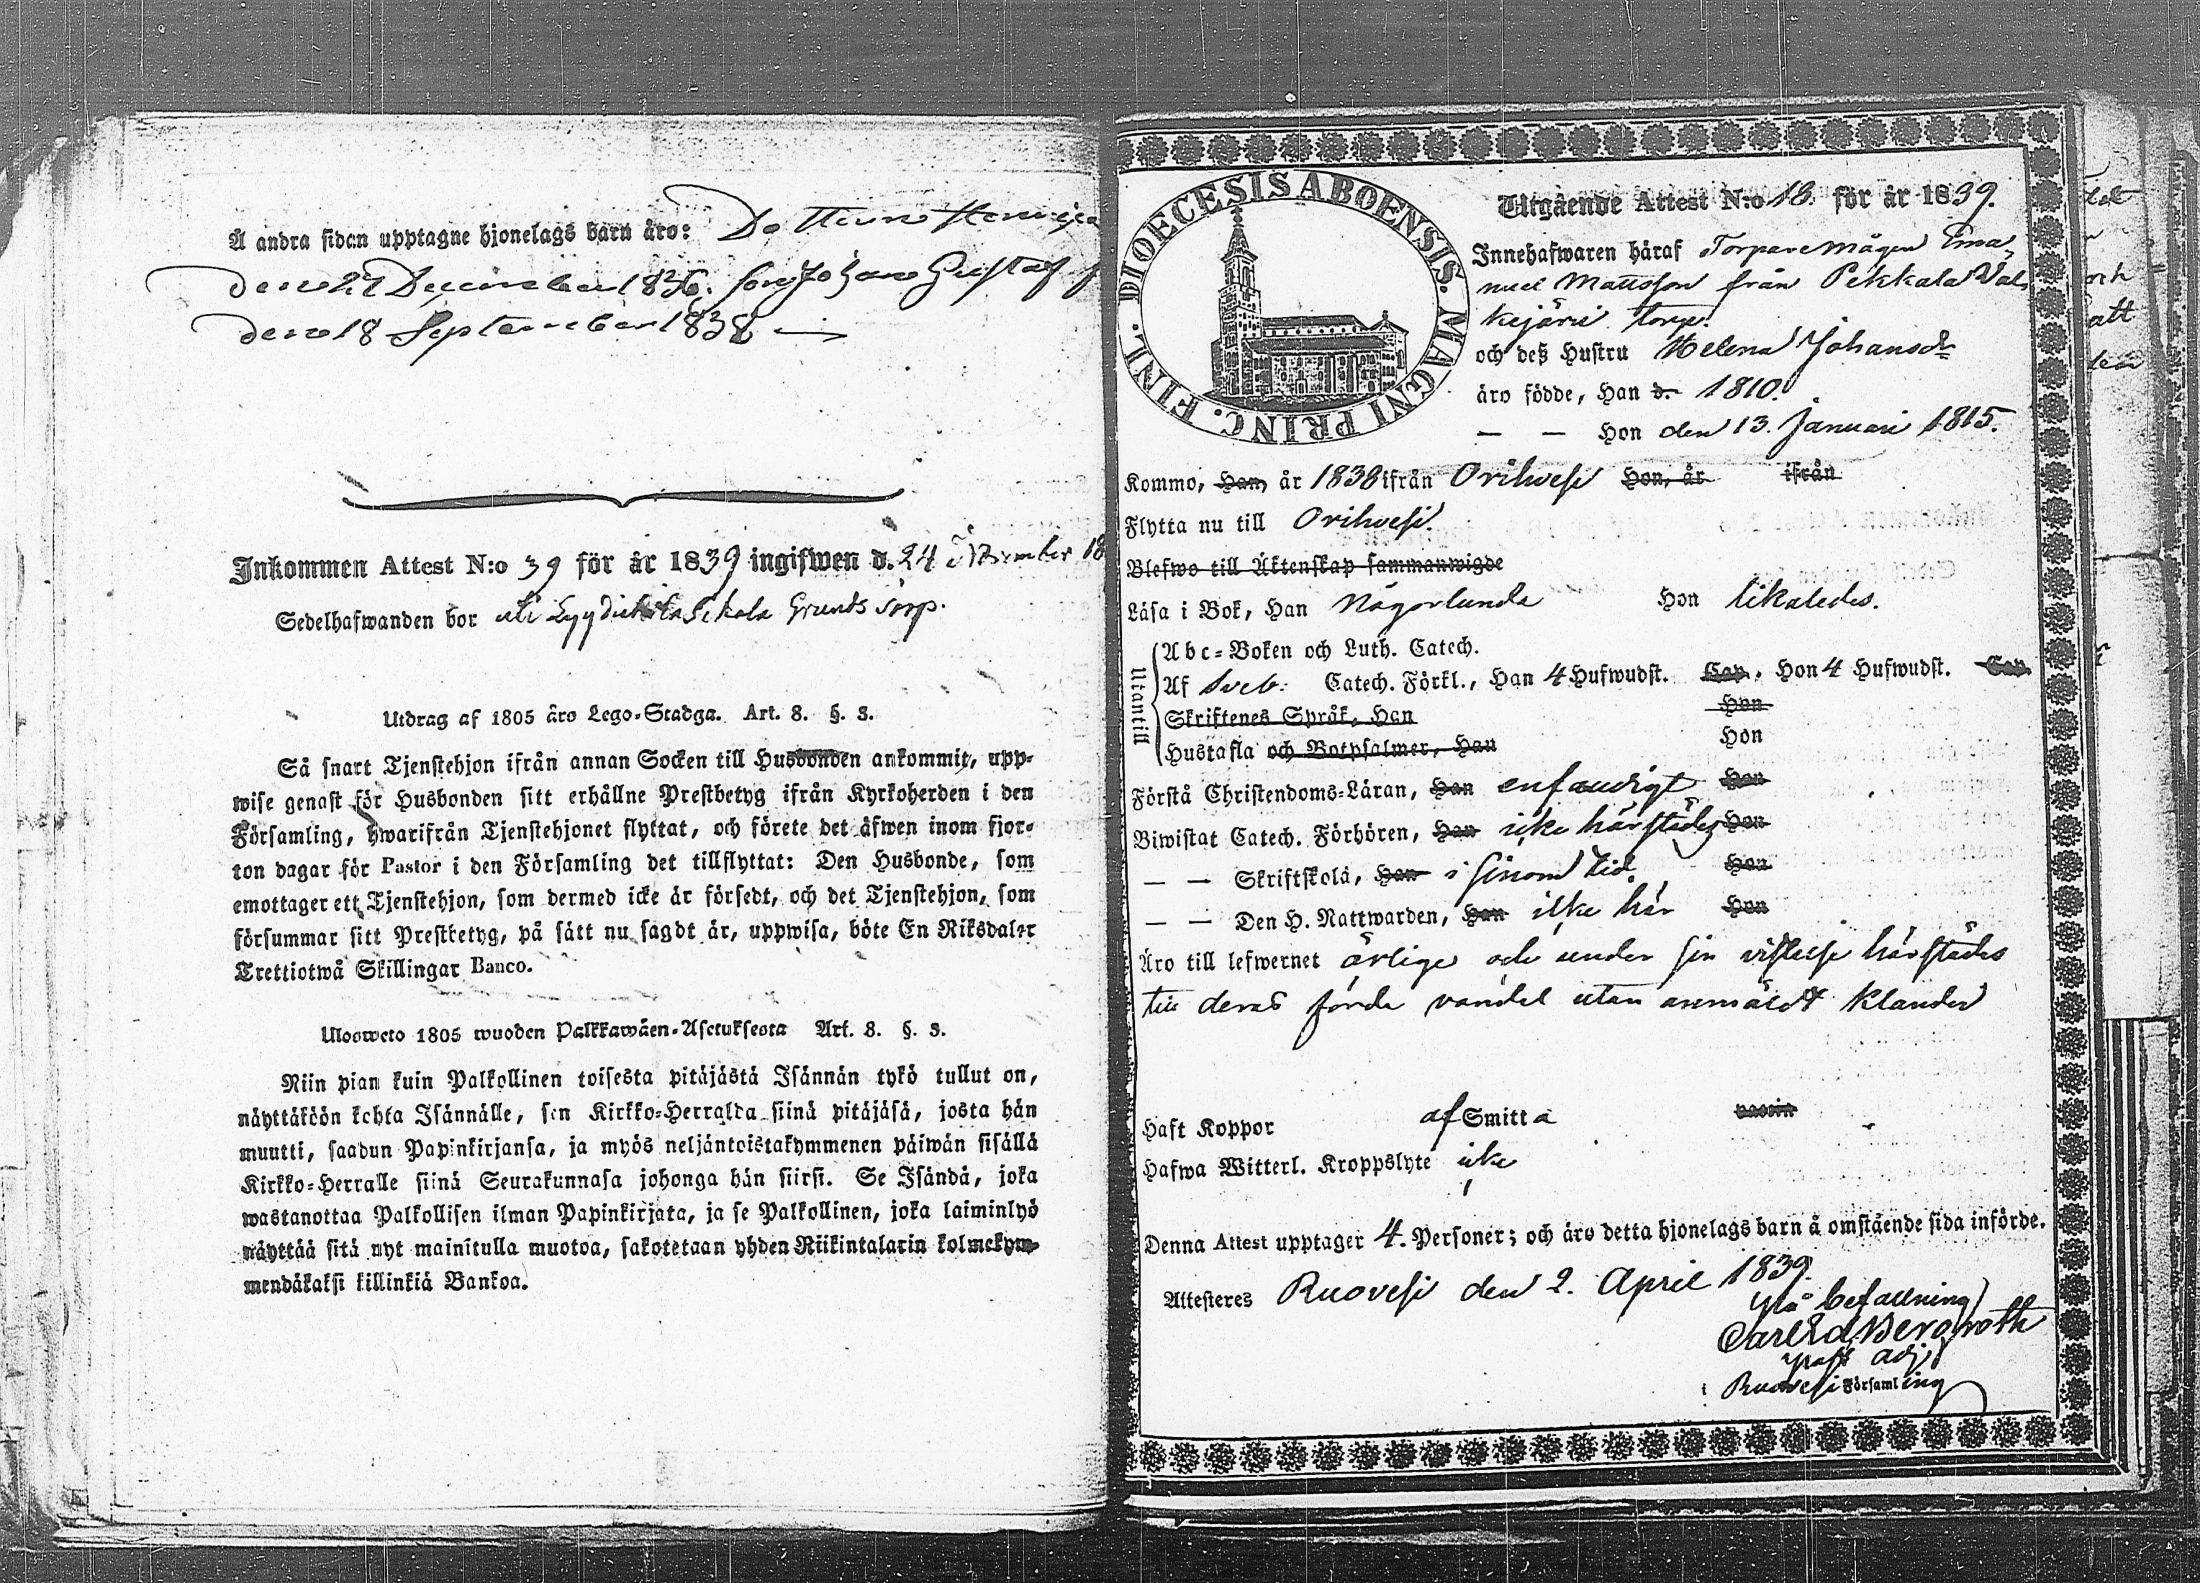 Å andra sidan upptagne hjonelags barn äro: Dottern
den 27 December 1836. son Johan Gustaf
den 18 September 1838
Inkommen Attest N:o 39 för år 1839 ingifwen d. 24 December 18
Sedelhafwanden bor uti Grunds torp.
Utdrag af 1805 års Lego-Stadga. Art. 8. §. 3.
Så snart Tjenstehjon ifrån annan Socken till Husbonden ankommit, upp-
wise genast för Husbonden sitt erhållne Prestbetyg ifrån Kyrkoherden i den
Församling, hwarifrån Tjenstehjonet flyttat, och förete det äfwen inom fjor-
ton dagar för Pastor i den Församling det tillflyttat: Den Husbonde, som
emottager ett Tjenstehjon, som dermed icke är försedt, och det Tjenstehjon, som
försummar sitt Prestbetyg, på sätt nu sagdt är, uppwisa, böte En Riksdaler
Trettiotwå Skillingar Banco.
Ulosweto 1805 wuoden Palkkawäen-Asetuksesta Art. 8. §. 3.
Niin pian kuin Palkollinen toisesta pitäjästä Isännän tykö tullut on,
näyttäköön kohta Isännälle, sen Kirkko-Herralda siinä pitäjäsä, josta hän
muutti, saadun Papinkirjansa, ja myös neljäntoistakymmenen päiwän sisällä
Kirkko-Herralle siinä Seurakunnasa johonga hän siirsi. Se Isändä, joka
wastanottaa Palkollisen ilman Papinkirjata, ja se Palkollinen, joka laiminlyö
näyttää sitä nyt mainitulla muotoa, sakotetaan yhden Riikintalarin kolmekym-
mendäkaksi killinkiä Bankoa.
DIOECESIS ABOENSIS. MAGNI PRINC. FINL.
Utgående Attest N:o 18. för år 1839.
Innehafwaren häraf Torparemågen Ema-
nuel Mattsson från Pekkala Val-
kejärvi torp.
och deß Hustru Helena Johansdr
äro födde, Han d. 1810.
— — Hon den 13. Januari 1815.
Kommo, Han, år 1838 ifrån Orihvesi Hon, år ifrån
Flytta nu till Orihvesi.
Blefwo till Äktenskap sammanwigde
Läsa i Bok, Han Någorlunda Hon likaledes.
Utantill
Abc-Boken och Luth. Catech.
Af Sveb: Catech. Förkl., Han 4 Hufwudst. Cap. Hon 4 Hufwudst. Cap.
Skriftenes Språk, Han Hon
Hustafla och Botpsalmer, Han Hon
Förstå Christendoms-Läran, Han enfaldigt Hon
Biwistat Catech. Förhören, Han icke härstädes Hon
— — Skriftskola, Han i sinom tid. Hon
— — Den H. Nattwarden, Han icke här Hon
Äro till lefwernet ärlige och under sin vistelse härstädes
till deras förda vandel utan anmäldt klander
Haft Koppor af Smitta vaccin
Hafwa Witterl. Kroppslyte icke
Denna Attest upptager 4. Personer; och äro detta hjonelags barn å omstående sida införde.
Attesteres Ruovesi den 2. April 1839.
På befallning
Carl Ed. Bergroth
Past. adj.
i Ruovesi Församling